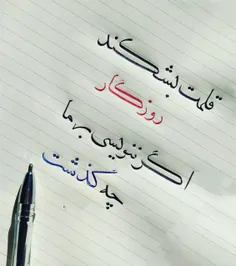 قلمت بشکند
روزگار
اگر ننویسی بر ما
چه گذشت